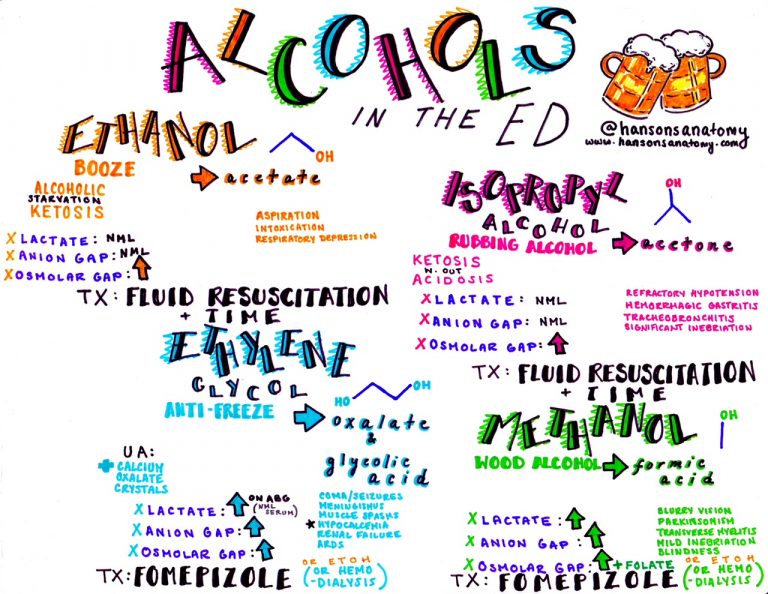 ALCOHOLS
IN THE ED
@hansonsanatomy
www.hansonsanatomy.com
ETHANOL
BOOZE
OH
→ acetate
ALCOHOLIC
STARVATION
KETOSIS
ASPIRATION
INTOXICATION
RESPIRATORY DEPRESSION
X LACTATE: NML
X ANION GAP: NML
X OSMOLAR GAP: ↑
TX: FLUID RESUSCITATION
+ TIME
ISOPROPYL
ALCOHOL
RUBBING ALCOHOL → acetone
OH
KETOSIS
W. OUT
ACIDOSIS
X LACTATE: NML
X ANION GAP: NML
X OSMOLAR GAP: ↑
REFRACTORY HYPOTENSION
HEMORRHAGIC GASTRITIS
TRACHEOBRONCHITIS
SIGNIFICANT INEBRIATION
TX: FLUID RESUSCITATION
+ TIME
ETHYLENE
GLYCOL
ANTI-FREEZE →
HO OH
oxalate
&
glycolic
acid
UA:
+ CALCIUM
OXALATE
CRYSTALS
X LACTATE: ↑ ON ABG
(NML
SERUM)
X ANION GAP: ↑
X OSMOLAR GAP: ↑
COMA/SEIZURES
MENINGISMUS
MUSCLE SPASMS
★ HYPOCALCEMIA
RENAL FAILURE
ARDS
TX: FOMEPIZOLE
OR ETOH
(OR HEMO
-DIALYSIS)
METHANOL
OH
WOOD ALCOHOL → formic
acid
X LACTATE: ↑
X ANION GAP: ↑
X OSMOLAR GAP: ↑
BLURRY VISION
PARKINSONISM
TRANSVERSE MYELITIS
MILD INEBRIATION
BLINDNESS
+ FOLATE
TX: FOMEPIZOLE
OR ETOH
(OR HEMO
-DIALYSIS)